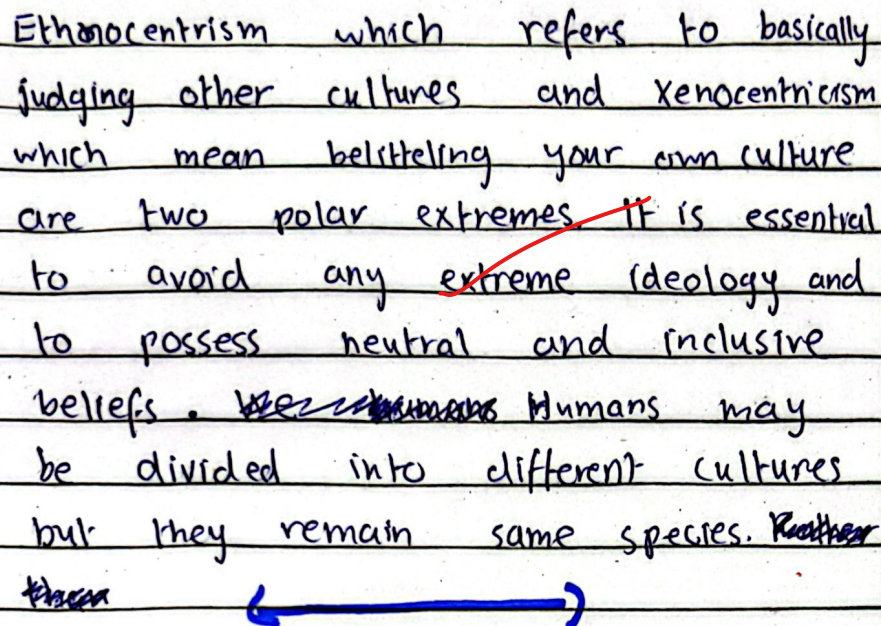 Ethnocentrism which refers to basically
judging other cultures and xenocentricism
which mean belitteling your own culture
are two polar extremes. It is essential
to avoid any extreme ideology and
to possess neutral and inclusive
beliefs. Humans may
be divided into different cultures
but they remain same species.